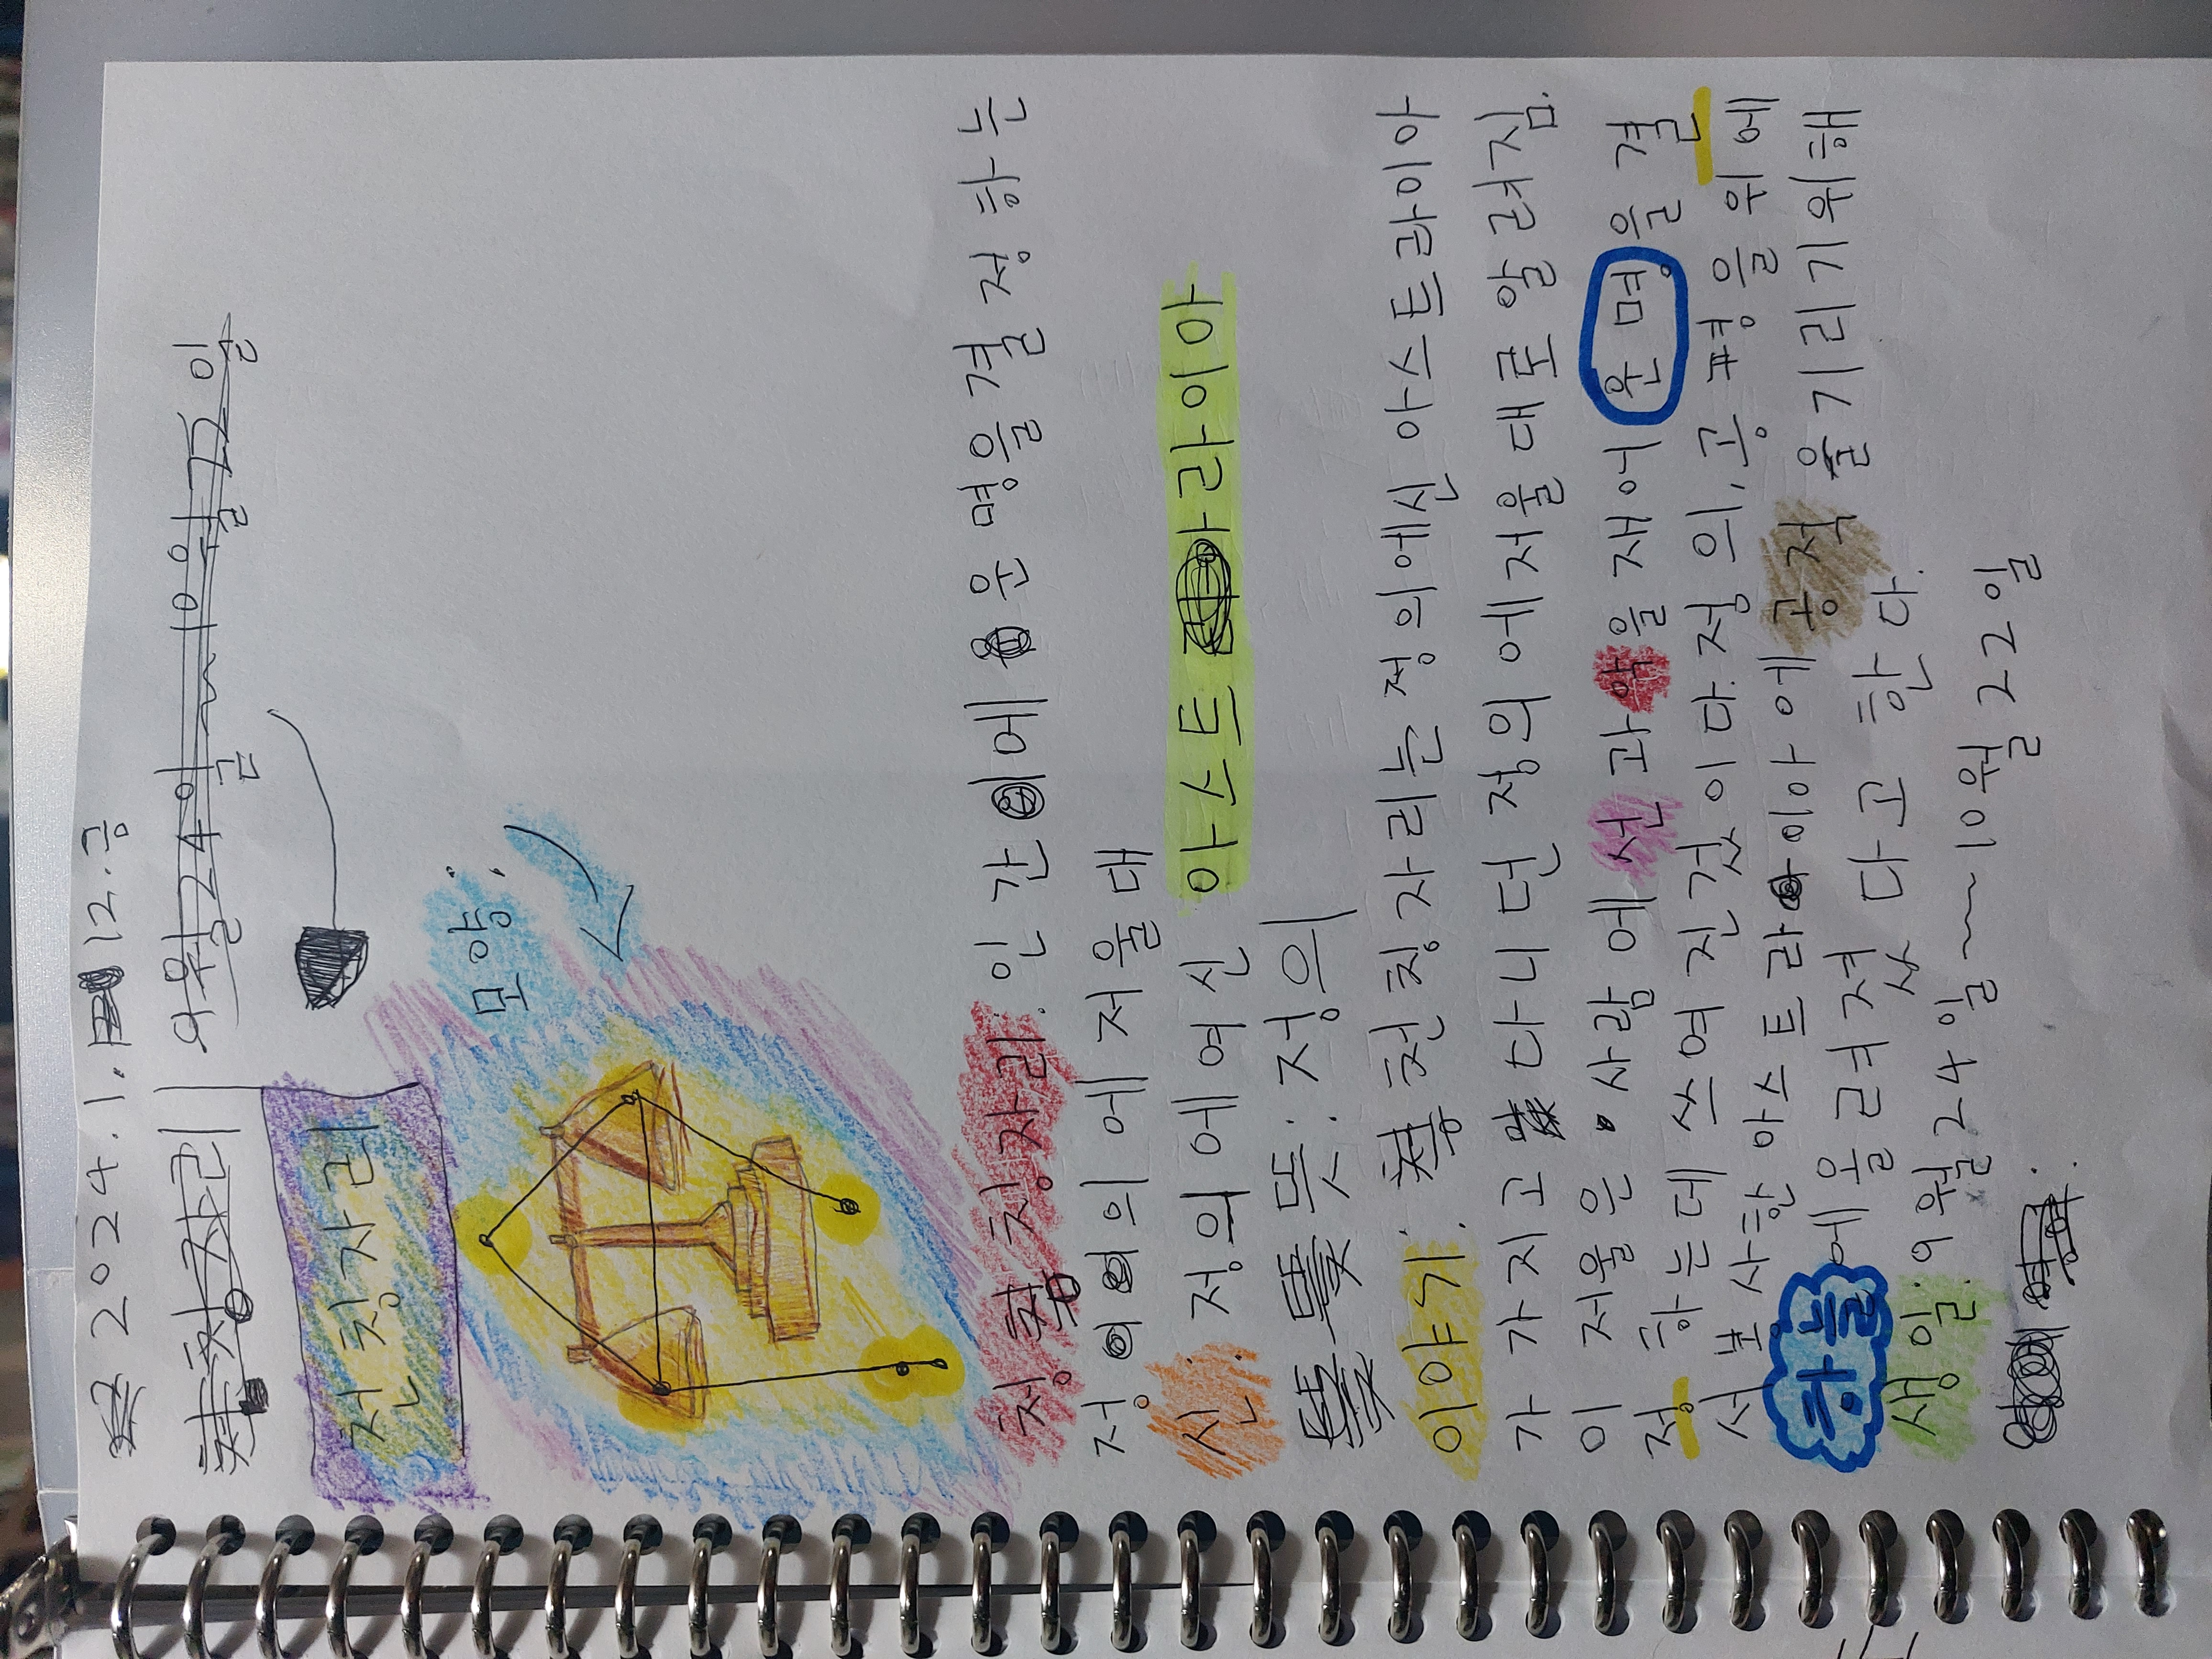 2024. 1. 12. 금
천칭자리 9월 24일 ~ 10월 22일
천칭자리
모양:
청칭자리: 인간에 운명을 결정하는
정의에 저울대
신: 정의에 여신 아스트라이아
뜻: 정의
이야기: 천칭자리는 정의에신 아스트라이아
가 가지고 다니던 정의에저울대로 알려짐.
이 저울은 사람에 선과 악을 재어 운명을 결
정하는데 쓰여진것이다. 정의, 공평을 위에
서 보사한 아스트라이아에 공적을 기리기위해
하늘에 올려졌다고 한다.
생일: 9월 24일 ~ 10월 22일